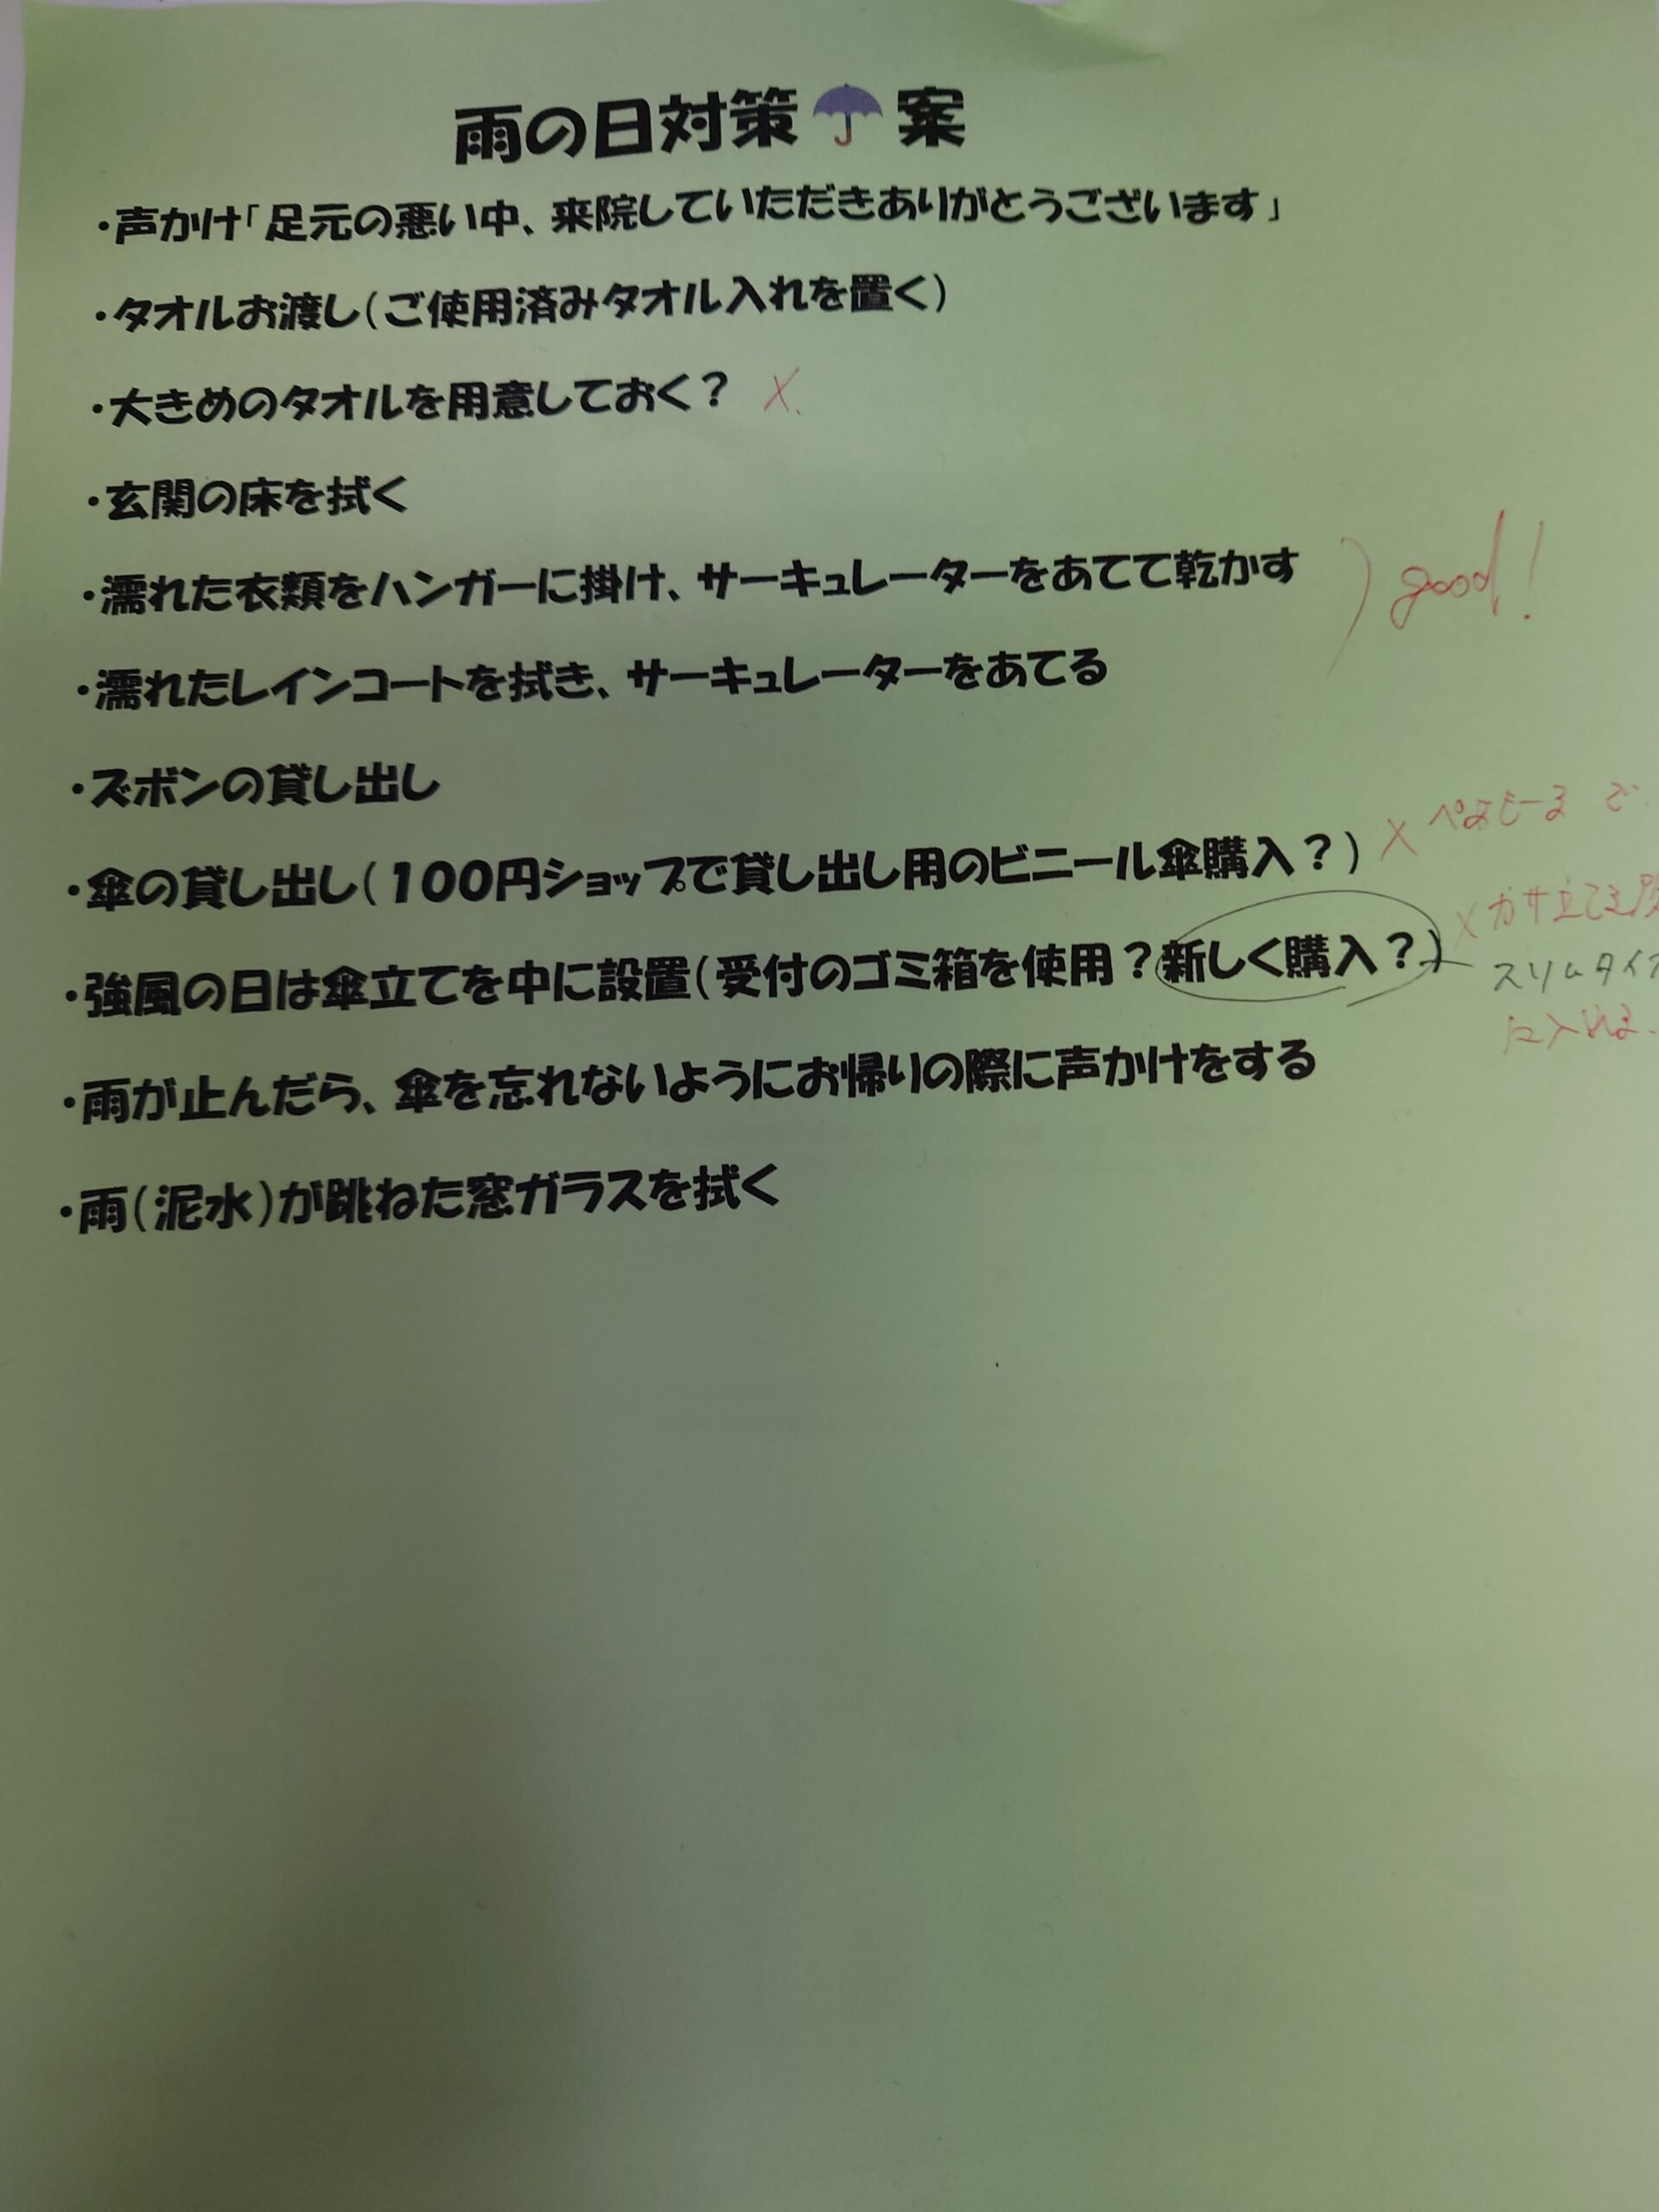 雨の日対策☂案
・声かけ「足元の悪い中、来院していただきありがとうございます」
・タオルお渡し(ご使用済みタオル入れを置く)
・大きめのタオルを用意しておく? ×
・玄関の床を拭く
・濡れた衣類をハンガーに掛け、サーキュレーターをあてて乾かす
good!
・濡れたレインコートを拭き、サーキュレーターをあてる
・ズボンの貸し出し
・傘の貸し出し(100円ショップで貸し出し用のビニール傘購入?) ×
・強風の日は傘立てを中に設置(受付のゴミ箱を使用?新しく購入?) × カサ立てを
スリムタイ
に入れる
・雨が止んだら、傘を忘れないようにお帰りの際に声かけをする
・雨(泥水)が跳ねた窓ガラスを拭く